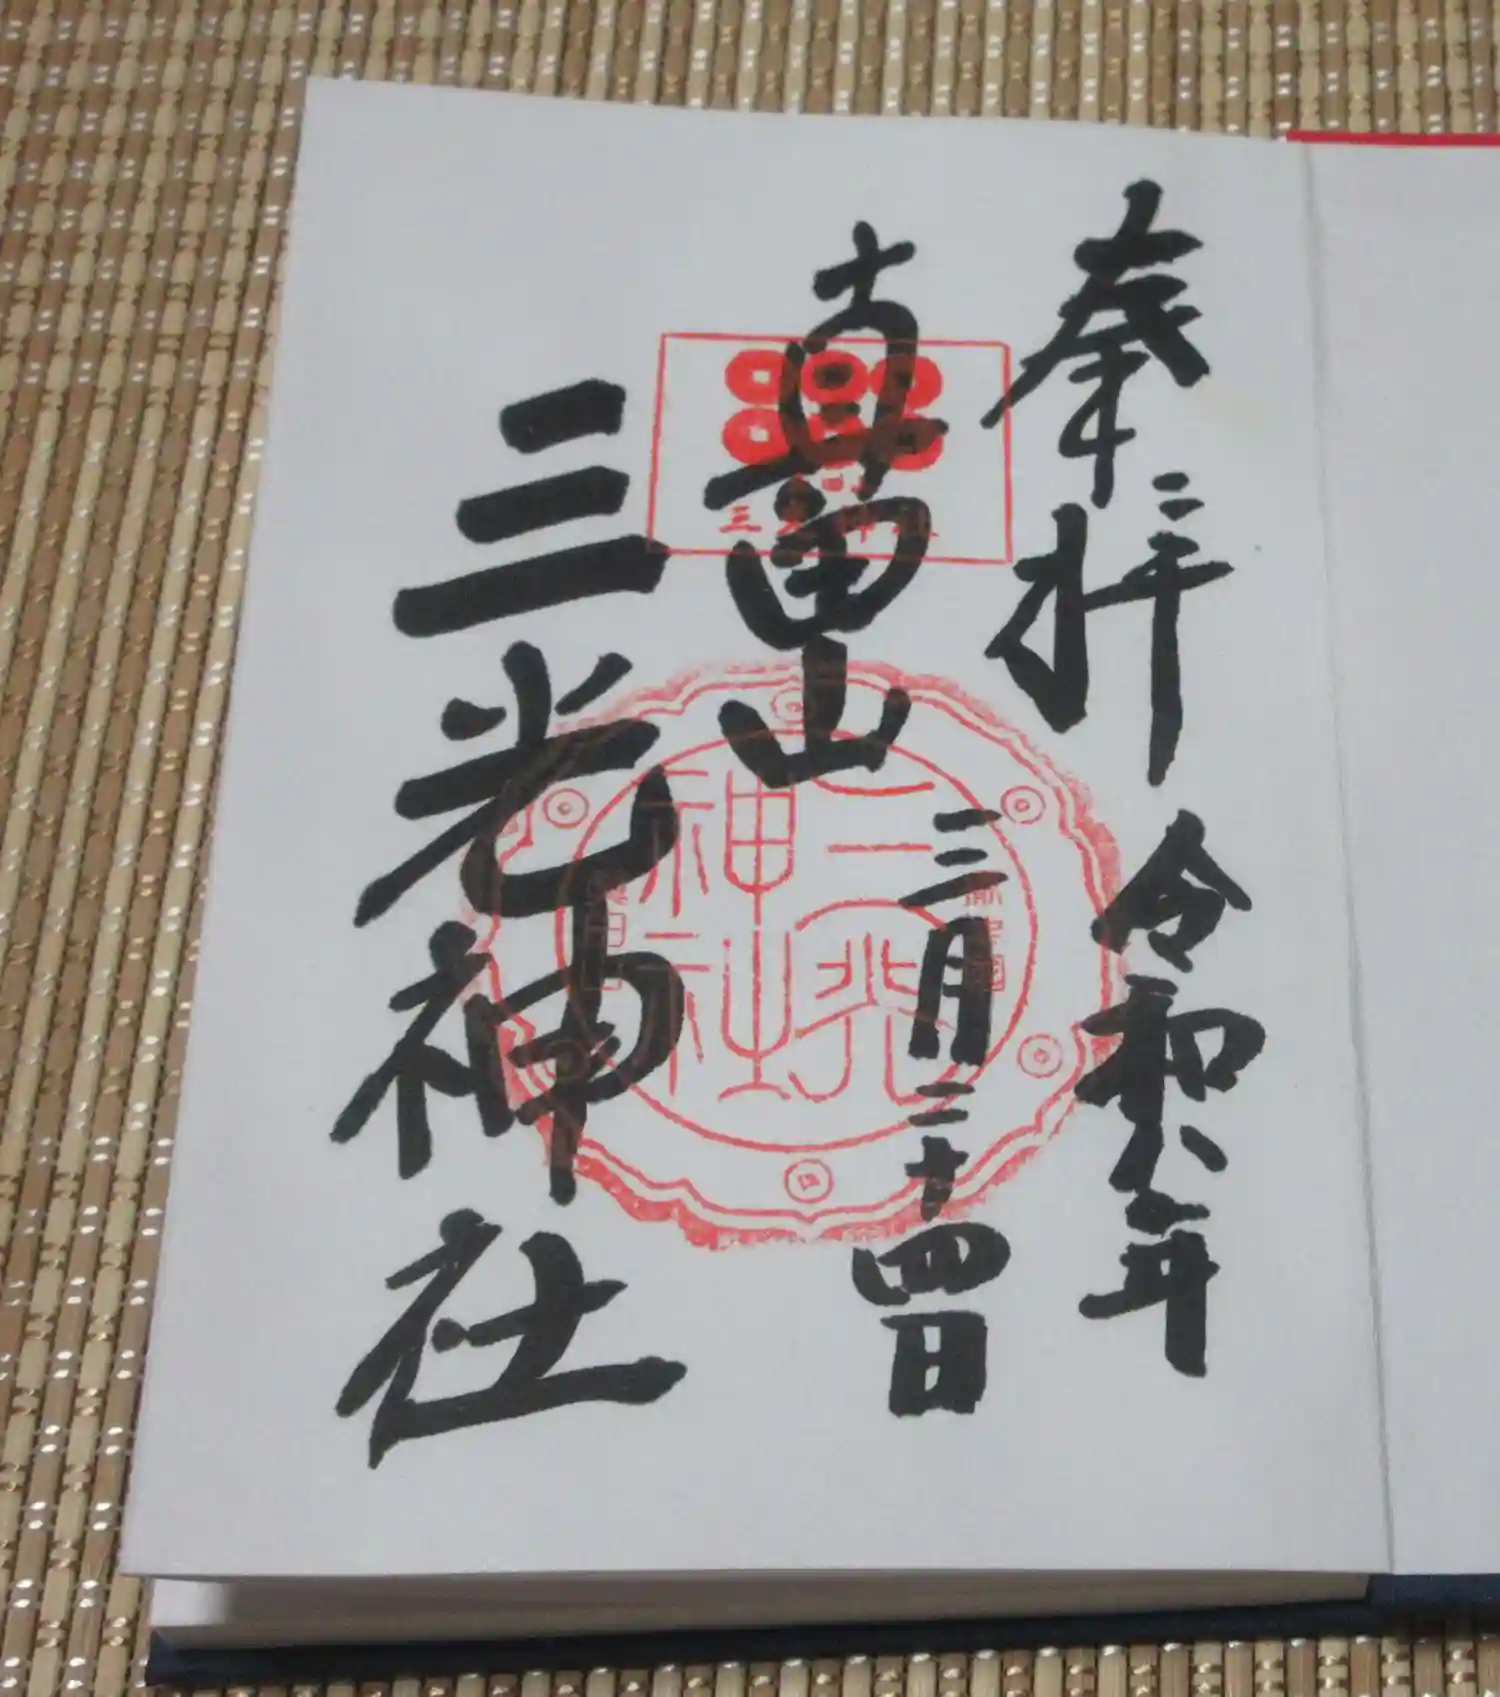 奉拝
令和六年
三月二十四日
真田山
三光神社
三光神社
三光神社